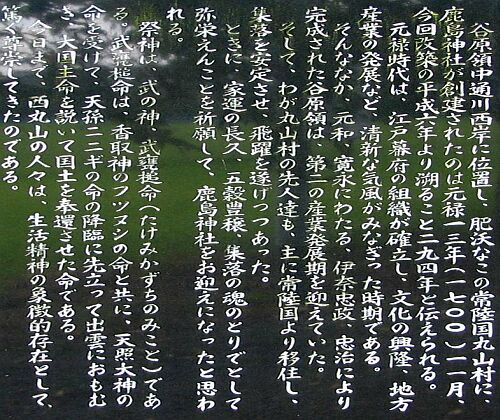 谷原領中通川西岸に位置し、肥沃なこの常陸国丸山村に、
鹿島神社が創建されたのは元禄一三年(一七〇〇)一一月、
今回改築の平成六年より溯ること二九四年と伝えられる。
元禄時代は、江戸幕府の組織が確立し、文化の興隆、地方
産業の発展など、清新な気風がみなぎった時期である。
そんななか、元和、寛永にわたる、伊奈忠政、忠治により
完成された谷原領は、第二の産業発展期を迎えていた。
そして、わが丸山村の先人達も、主に常陸国より移住し、
集落を安定させ、飛躍を遂げつつあった。
ときに、家運の長久、五穀豊穣、集落の魂のとりでとして
弥栄えんことを祈願して、鹿島神社をお迎えになったと思わ
れる。
祭神は、武の神 武甕槌命(たけみかずちのみこと)であ
る。武甕槌命は、香取神のフツヌシの命と共に、天照大神の
命を受けて、天孫ニニギの命の降臨に先立って出雲におもむ
き、大国主命を説いて国土を奉還させた命である。
今日まで、西丸山の人々は、生活精神の象徴的存在として、
篤く尊崇してきたのである。